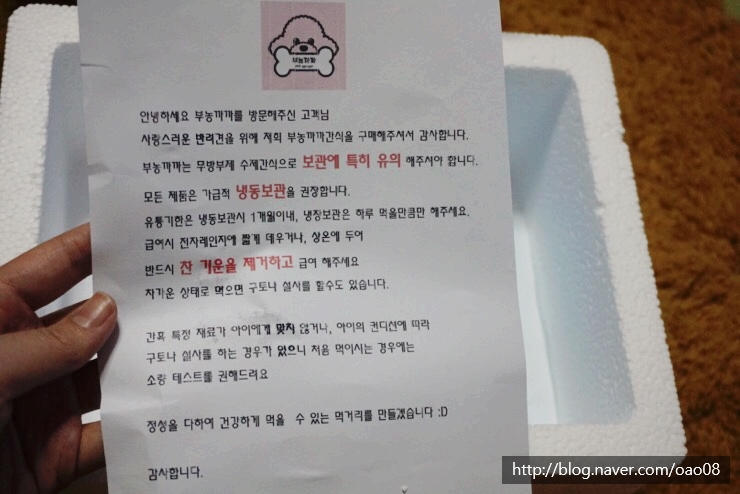 부농까까
안녕하세요 부농까까를 방문해주신 고객님
사랑스러운 반려견을 위해 저희 부농까까간식을 구매해주셔서 감사합니다.
부농까까는 무방부제 수제간식으로 보관에 특히 유의 해주셔야 합니다.
모든 제품은 가급적 냉동보관을 권장합니다.
유통기한은 냉동보관시 1개월이내, 냉장보관은 하루 먹을만큼만 해주세요.
급여시 전자레인지에 짧게 데우거나, 상온에 두어
반드시 찬 기운을 제거하고 급여 해주세요
차가운 상태로 먹으면 구토나 설사를 할수도 있습니다.
간혹 특정 재료가 아이에게 맞지 않거나, 아이의 컨디션에 따라
구토나 설사를 하는 경우가 있으니 처음 먹이시는 경우에는
소량 테스트를 권해드려요
정성을 다하여 건강하게 먹을 수 있는 먹거리를 만들겠습니다 :D
감사합니다.
http://blog.naver.com/oao08